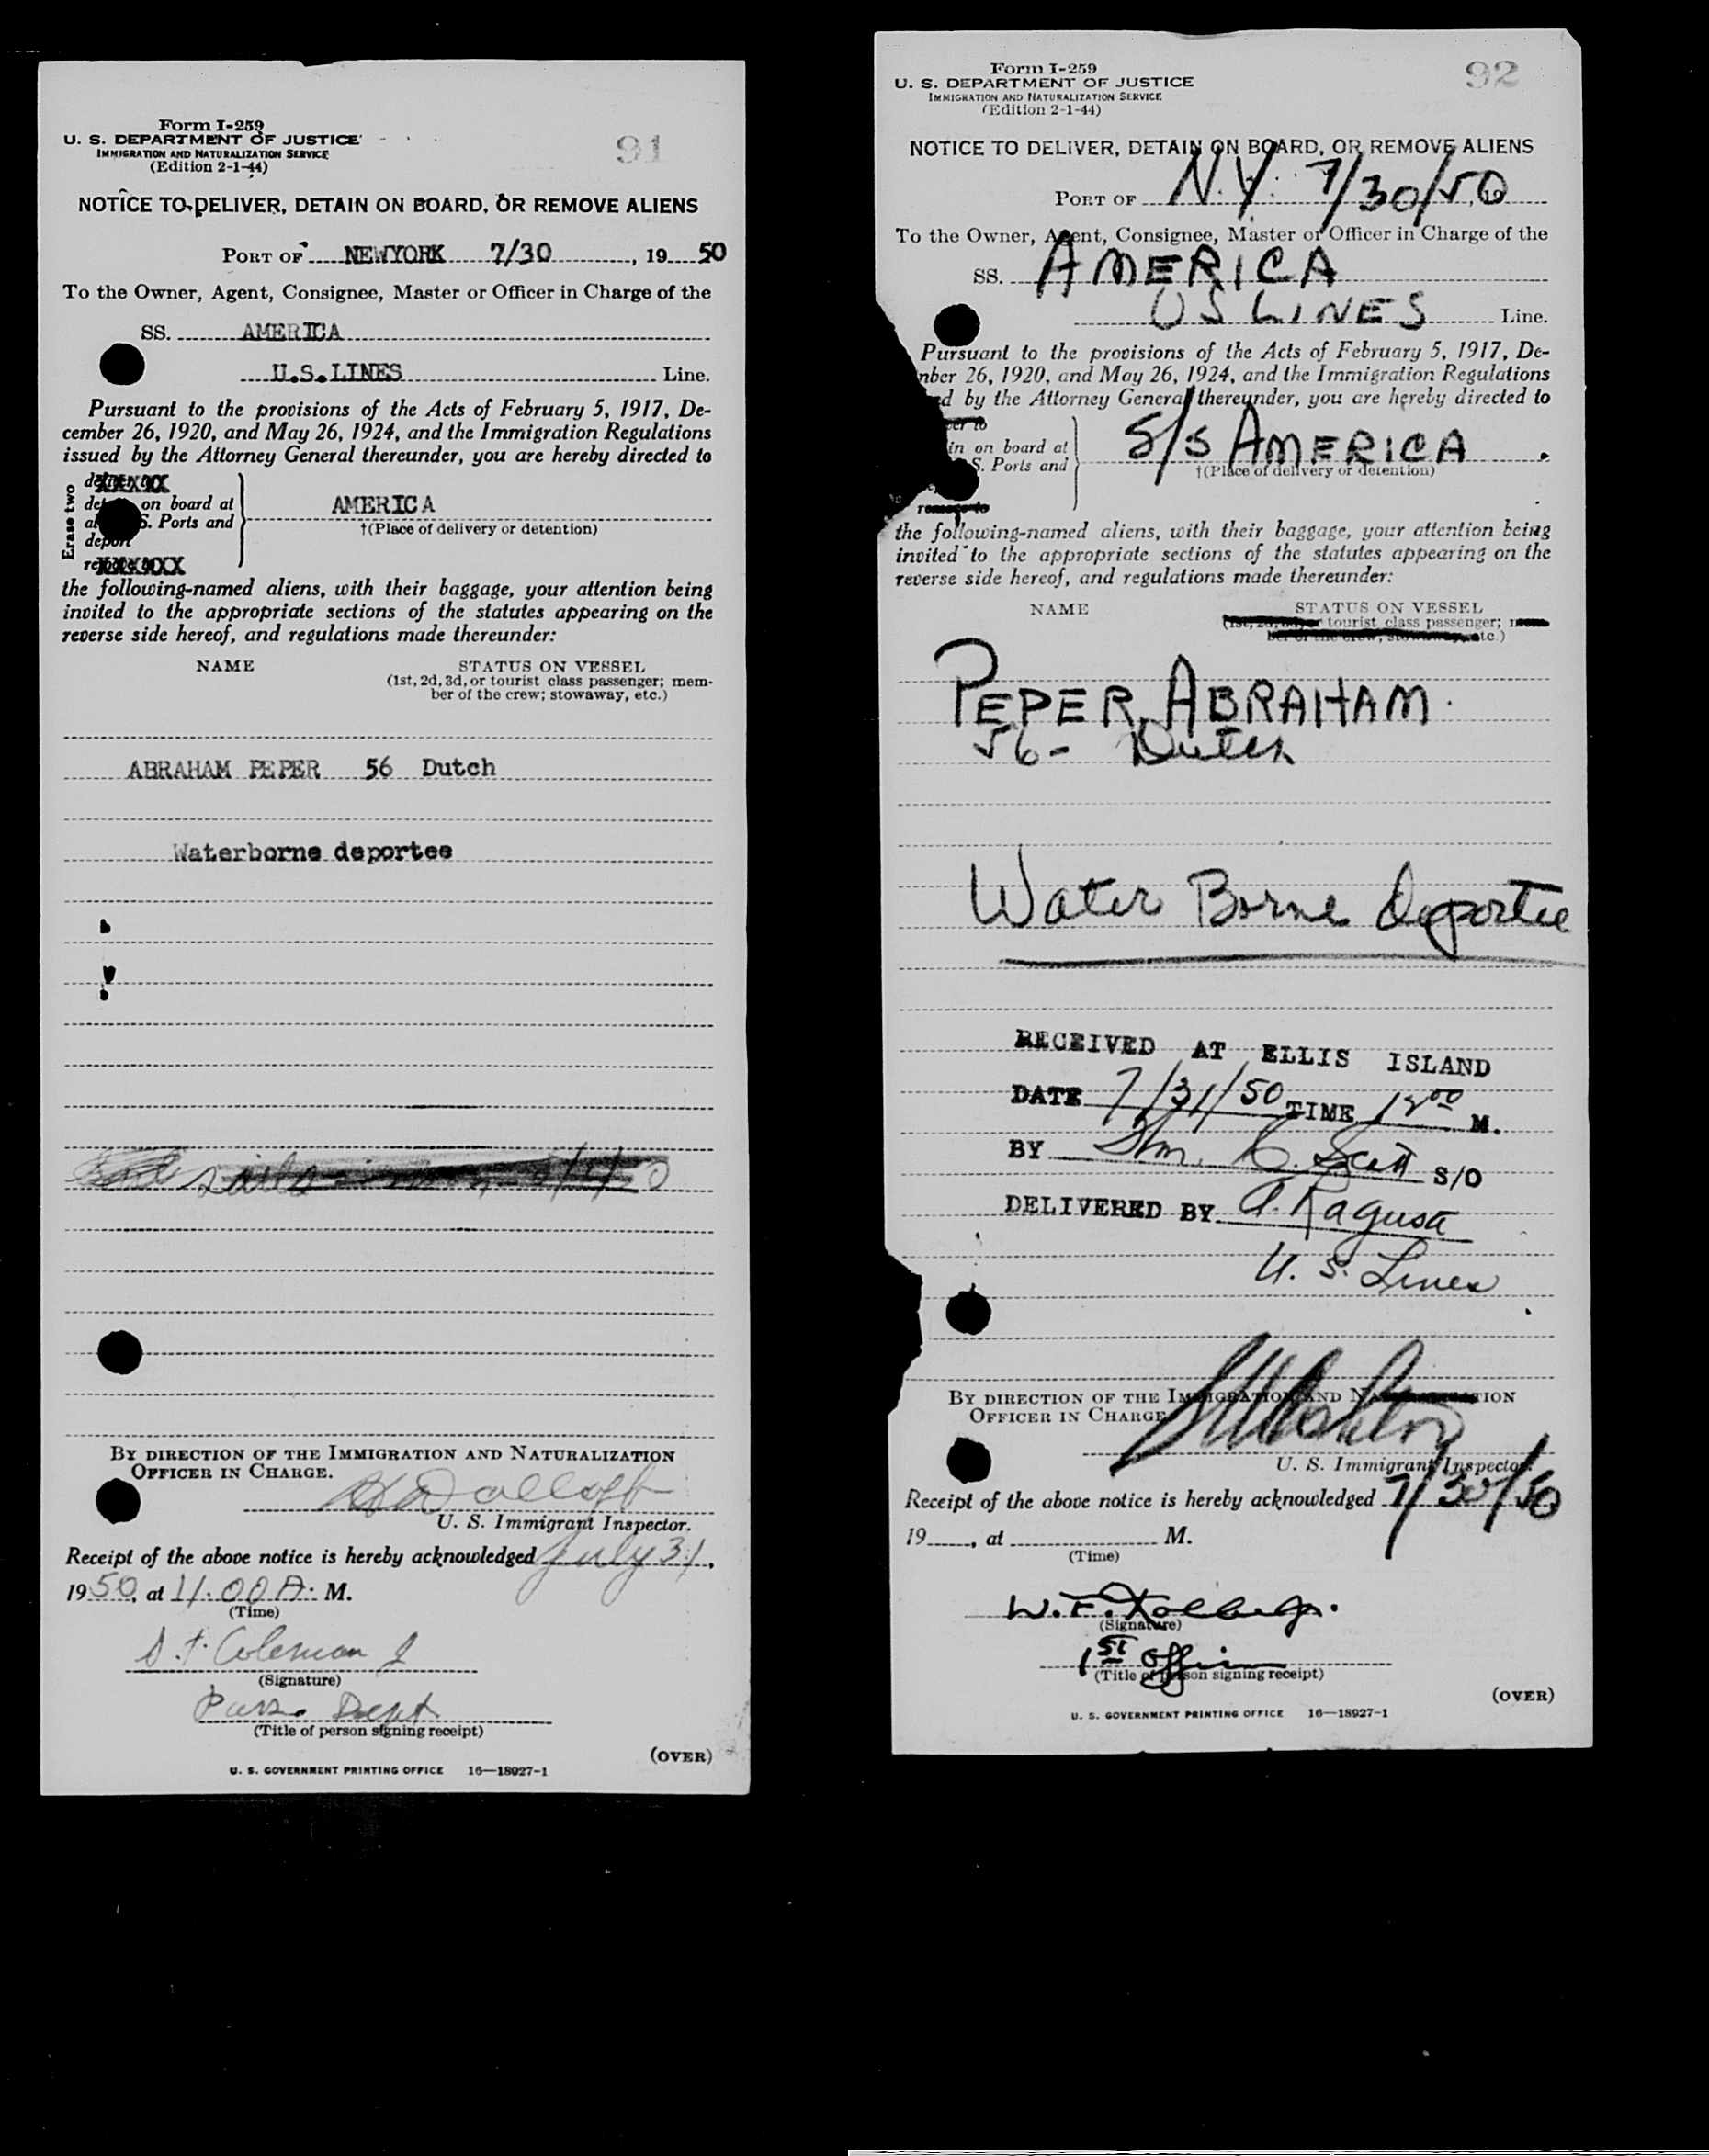 Form I-259
U. S. DEPARTMENT OF JUSTICE
IMMIGRATION AND NATURALIZATION SERVICE
(Edition 2-1-44)
91
NOTICE TO DELIVER, DETAIN ON BOARD, OR REMOVE ALIENS
PORT OF NEWYORK 7/30, 1950
To the Owner, Agent, Consignee, Master or Officer in Charge of the
SS. AMERICA
U.S.LINES Line.
Pursuant to the provisions of the Acts of February 5, 1917, De-
cember 26, 1920, and May 26, 1924, and the Immigration Regulations
issued by the Attorney General thereunder, you are hereby directed to
Erase two
on board at
S. Ports and
deport
AMERICA
†(Place of delivery or detention)
the following-named aliens, with their baggage, your attention being
invited to the appropriate sections of the statutes appearing on the
reverse side hereof, and regulations made thereunder:
NAME STATUS ON VESSEL
(1st, 2d, 3d, or tourist class passenger; mem-
ber of the crew; stowaway, etc.)
ABRAHAM PEPER 56 Dutch
Waterborne deportee
BY DIRECTION OF THE IMMIGRATION AND NATURALIZATION
OFFICER IN CHARGE.
U. S. Immigrant Inspector.
Receipt of the above notice is hereby acknowledged July 31,
1950, at 11.00 A. M.
(Time)
Coleman
(Signature)
Pass. Dept
(Title of person signing receipt)
(OVER)
U. S. GOVERNMENT PRINTING OFFICE 16—18927-1
Form I-259
U. S. DEPARTMENT OF JUSTICE
IMMIGRATION AND NATURALIZATION SERVICE
(Edition 2-1-44)
92
NOTICE TO DELIVER, DETAIN ON BOARD, OR REMOVE ALIENS
PORT OF N.Y. 7/30/50, 19
To the Owner, Agent, Consignee, Master or Officer in Charge of the
SS. AMERICA
US LINES Line.
Pursuant to the provisions of the Acts of February 5, 1917, De-
nber 26, 1920, and May 26, 1924, and the Immigration Regulations
d by the Attorney General thereunder, you are hereby directed to
in on board at
S. Ports and
S/S AMERICA
†(Place of delivery or detention)
the following-named aliens, with their baggage, your attention being
invited to the appropriate sections of the statutes appearing on the
reverse side hereof, and regulations made thereunder:
NAME STATUS ON VESSEL
tourist class passenger;
PEPER, ABRAHAM.
56- Dutch
Water Borne Deportee
RECEIVED AT ELLIS ISLAND
DATE 7/31/50 TIME 1200 M.
BY Wm. C. Scott S/O
DELIVERED BY A. Ragusa
U. S. Lines
BY DIRECTION OF THE IMMIGRATION AND NATURALIZATION
OFFICER IN CHARGE
U. S. Immigrant Inspector.
Receipt of the above notice is hereby acknowledged 7/30/50
19, at M.
(Time)
W.F.
(Signature)
1st Officer
(Title of person signing receipt)
(OVER)
U. S. GOVERNMENT PRINTING OFFICE 16—18927-1